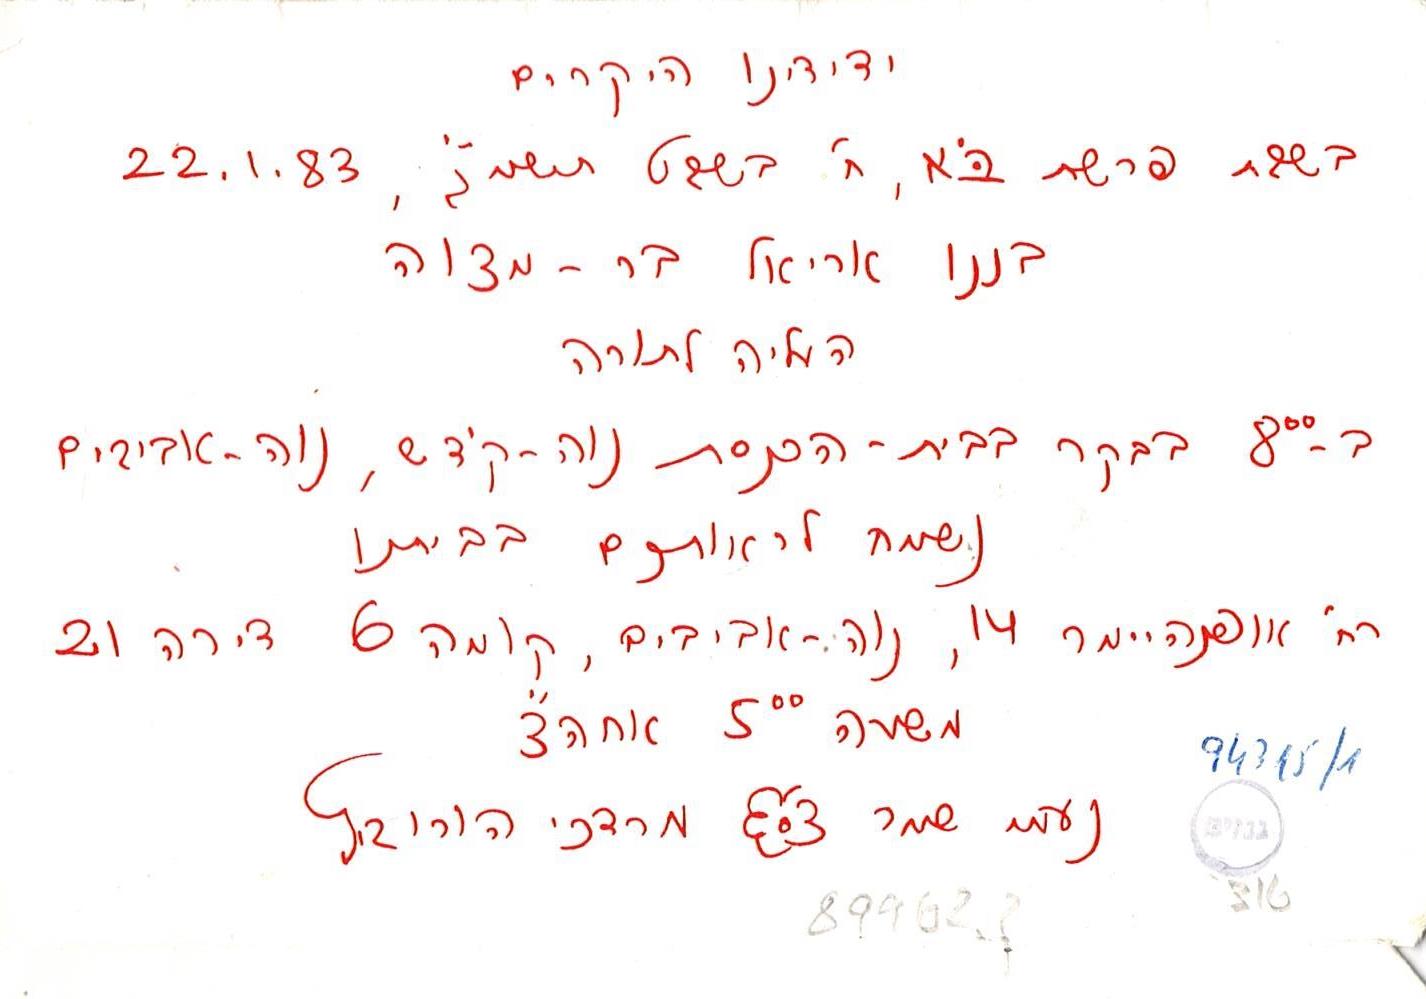 ידידינו היקרים
בשבת פרשת בֹּא, ח' בשבט תשמ"ג, 22.1.83
בננו אריאל בר-מצוה
העליה לתורה
ב-8⁰⁰ בבקר בבית-הכנסת נוה-קֹדש, נוה-אביבים
נשמח לראותכם בביתנו
רח' אופנהיימר 14, נוה-אביבים, קומה 6 דירה 21
משעה 5⁰⁰ אחה"צ
נעמי שמר מרדכי הורוביץ
94315/1